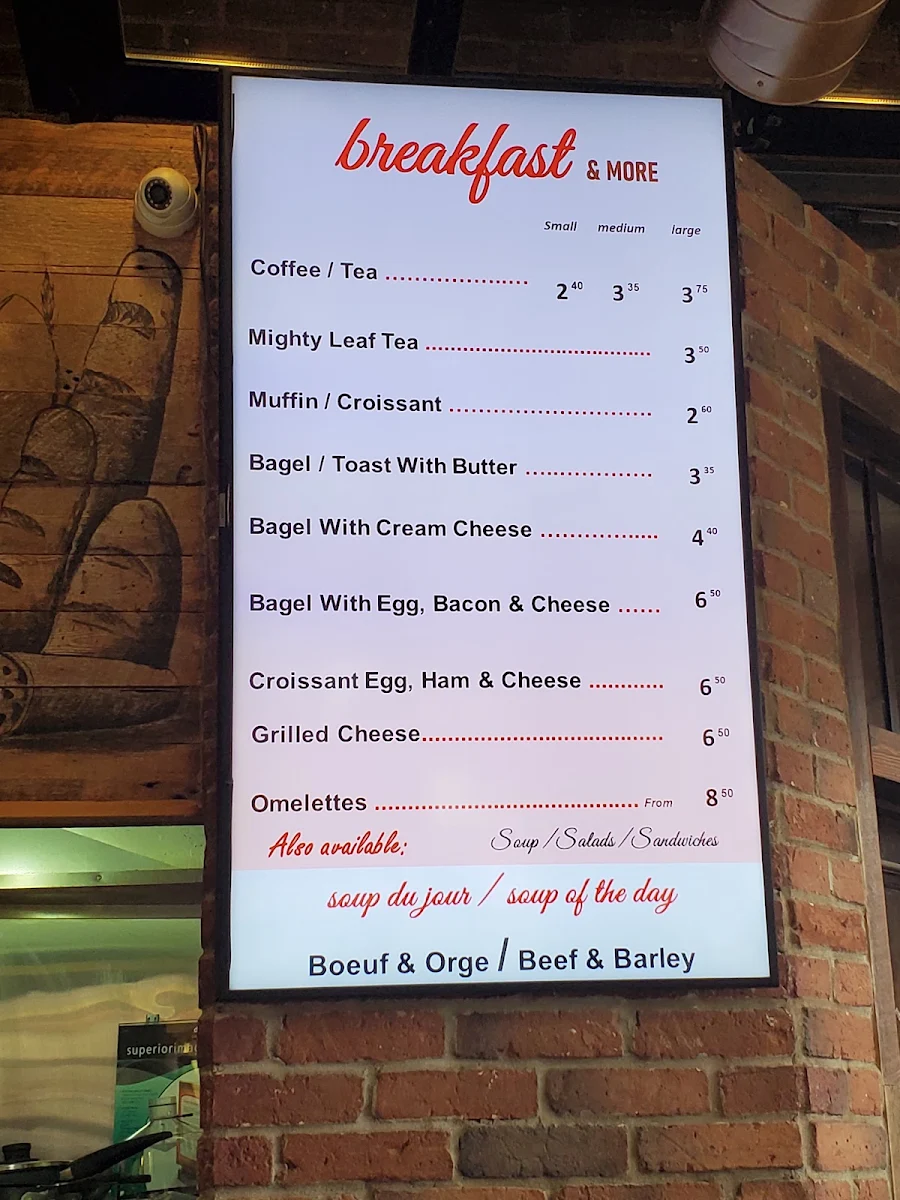 breakfast & MORE
Small medium large
Coffee / Tea .................... 2 40 3 35 3 75
Mighty Leaf Tea ................................ 3 50
Muffin / Croissant ............................. 2 60
Bagel / Toast With Butter .................. 3 35
Bagel With Cream Cheese ................. 4 40
Bagel With Egg, Bacon & Cheese ...... 6 50
Croissant Egg, Ham & Cheese ........... 6 50
Grilled Cheese................................... 6 50
Omelettes ...................................... From 8 50
Also available: Soup / Salads / Sandwiches
soup du jour / soup of the day
Boeuf & Orge / Beef & Barley